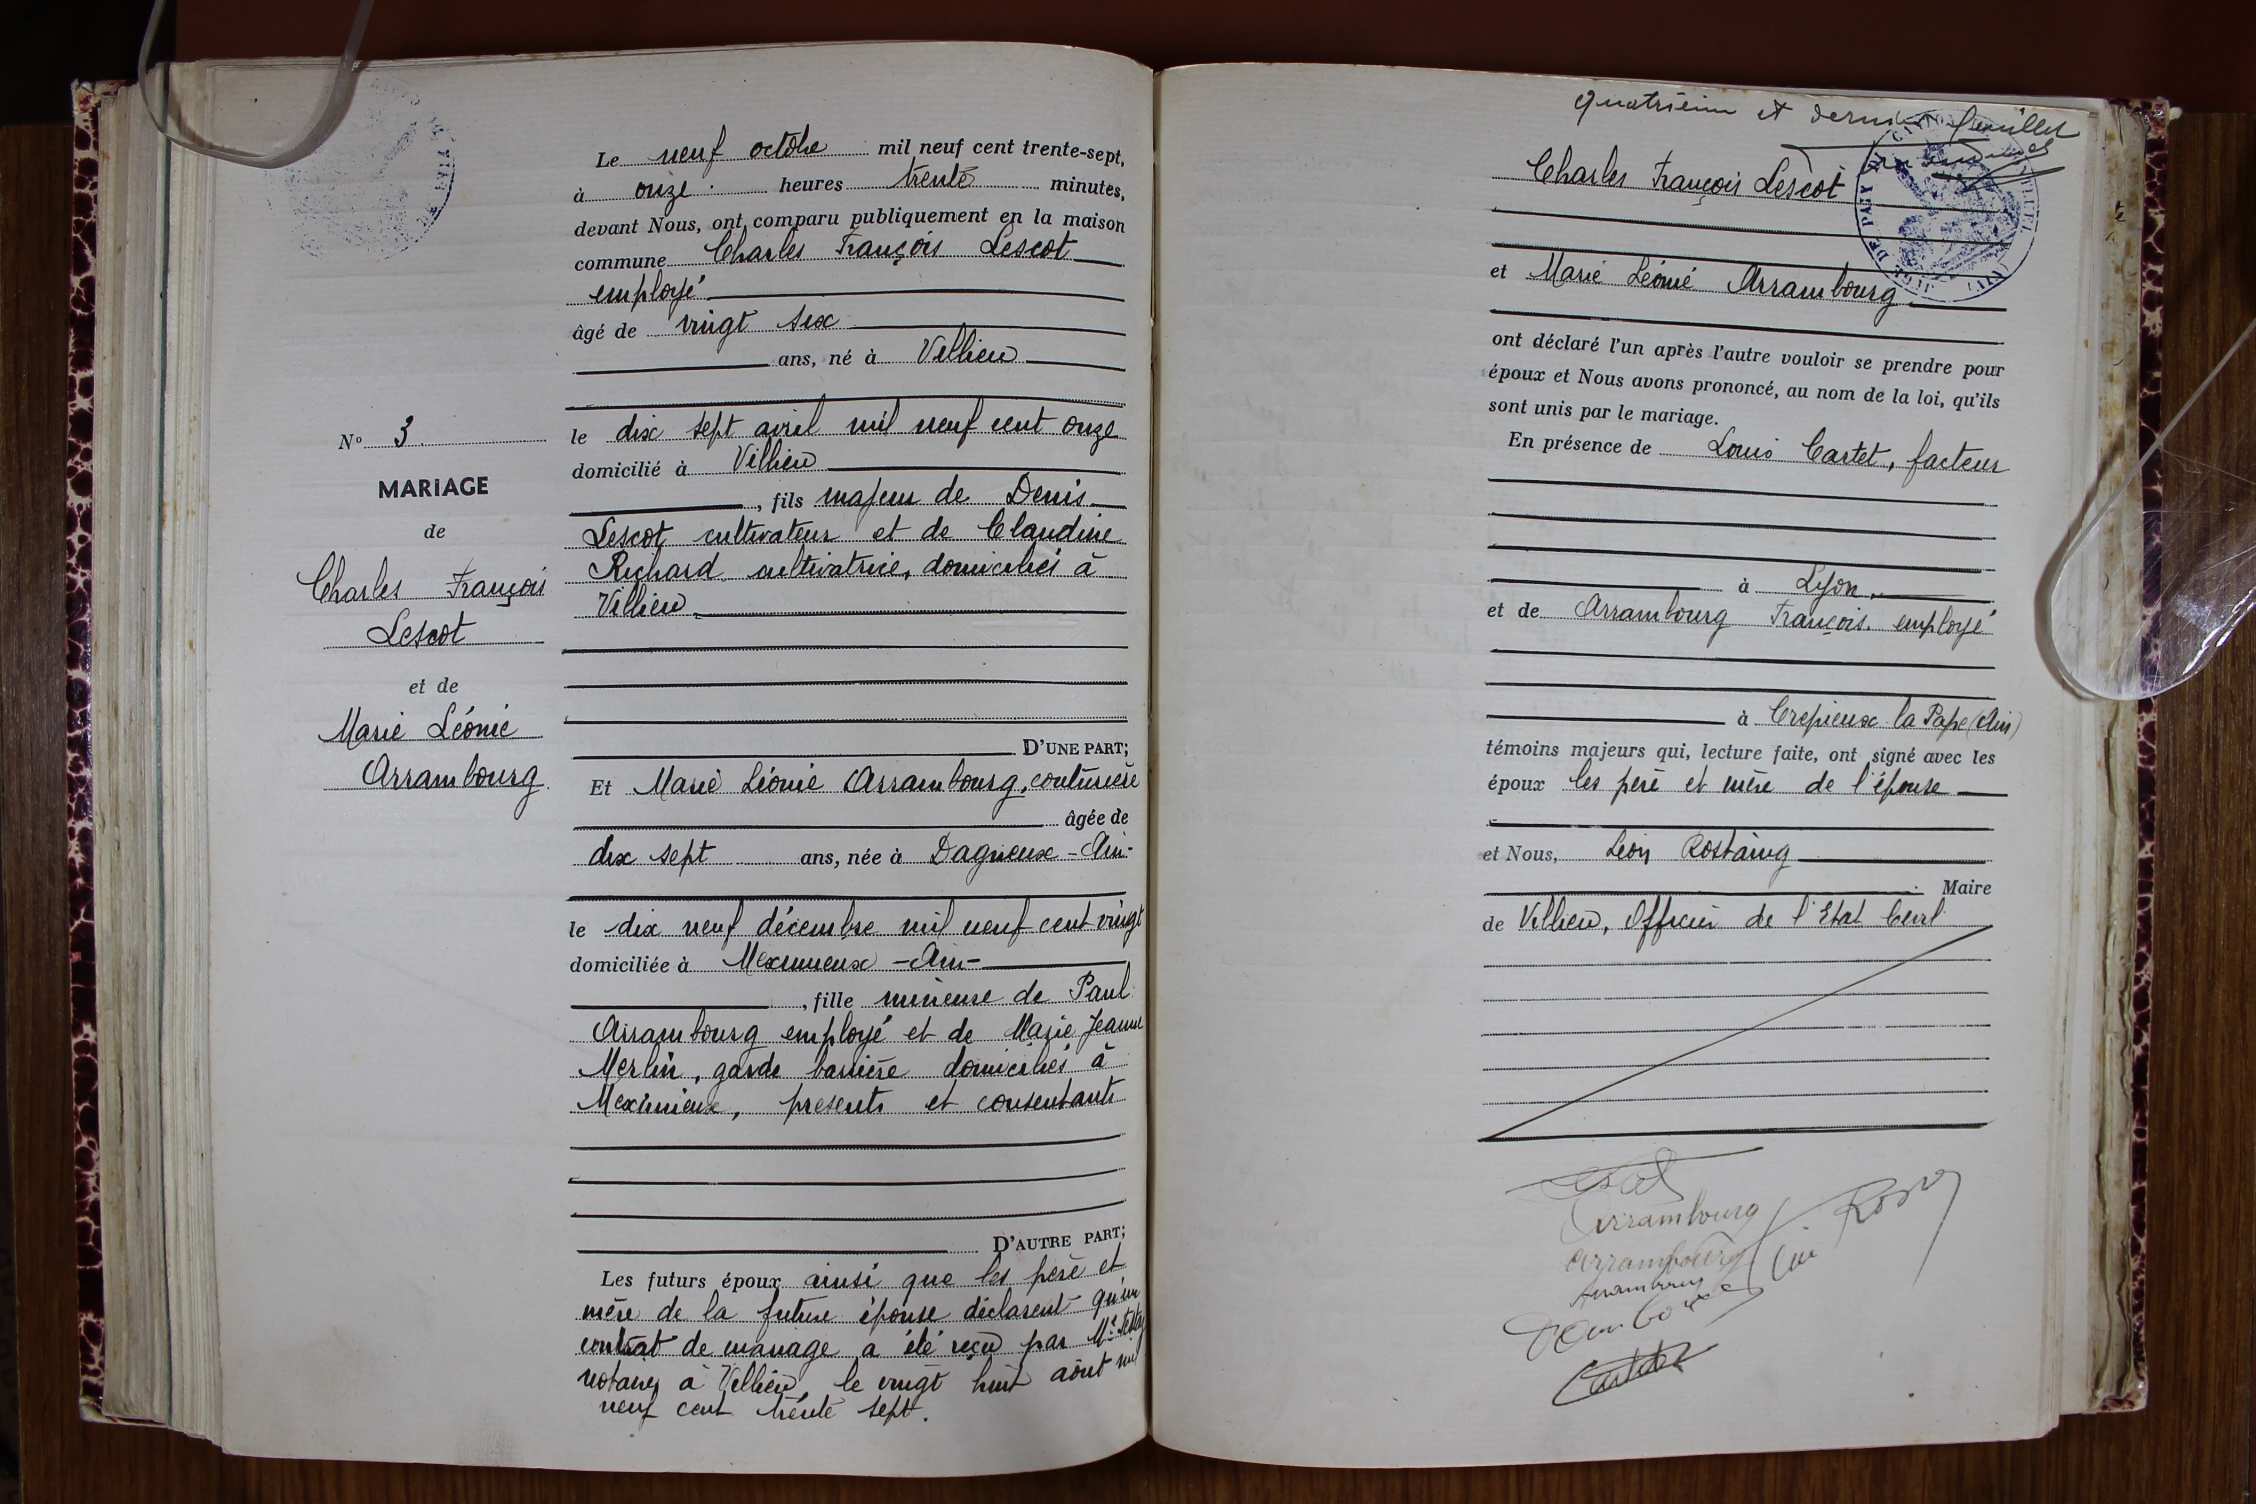 N° 3
MARIAGE
de
Charles François
Lescot
et de
Marie Léonie
Arrambourg
Le neuf octobre mil neuf cent trente-sept,
à onze heures trente minutes,
devant Nous, ont comparu publiquement en la maison
commune Charles François Lescot
employé
âgé de vingt six
ans, né à Villieu
le dix sept avril mil neuf cent onze
domicilié à Villieu
, fils majeur de Denis
Lescot cultivateur et de Claudine
Richard cultivatrice, domiciliés à
Villieu
D'UNE PART;
Et Marie Léonie Arrambourg, couturière
âgée de
dix sept ans, née à Dagneux - Ain -
le dix neuf décembre mil neuf cent vingt
domiciliée à Meximieux - Ain -
, fille mineure de Paul
Arrambourg employé et de Marie Jeanne
Merlin, garde barrière domiciliés à
Meximieux, présents et consentants
D'AUTRE PART;
Les futurs époux ainsi que les père et
mère de la future épouse déclarent qu'un
contrat de mariage a été reçu par Me
notaire à Villieu, le vingt huit août mil
neuf cent trente sept.
quatrième et dernier feuillet
Charles François Lescot
et Marie Léonie Arrambourg
ont déclaré l'un après l'autre vouloir se prendre pour
époux et Nous avons prononcé, au nom de la loi, qu'ils
sont unis par le mariage.
En présence de Louis Cartet, facteur
à Lyon
et de Arrambourg François employé
à Crepieux la Pape (Ain)
témoins majeurs qui, lecture faite, ont signé avec les
époux les père et mère de l'épouse
et Nous, Léon Rostaing
Maire
de Villieu, Officier de l'Etat Civil
Arrambourg
Arrambourg
Arrambourg
Cartet